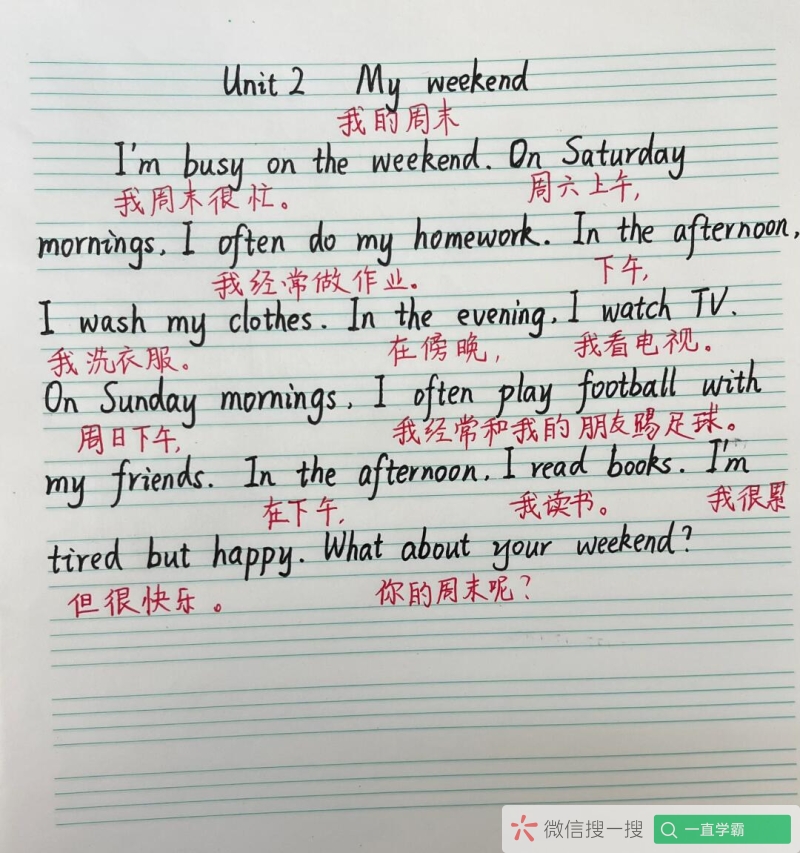 Unit 2 My weekend
我的周末
I'm busy on the weekend. On Saturday
我周末很忙。 周六上午,
mornings, I often do my homework. In the afternoon,
我经常做作业。 下午,
I wash my clothes. In the evening, I watch TV.
我洗衣服。 在傍晚, 我看电视。
On Sunday mornings, I often play football with
周日下午, 我经常和我的朋友踢足球。
my friends. In the afternoon, I read books. I'm
在下午, 我读书。 我很累
tired but happy. What about your weekend?
但很快乐。 你的周末呢?
微信搜一搜 一直学霸